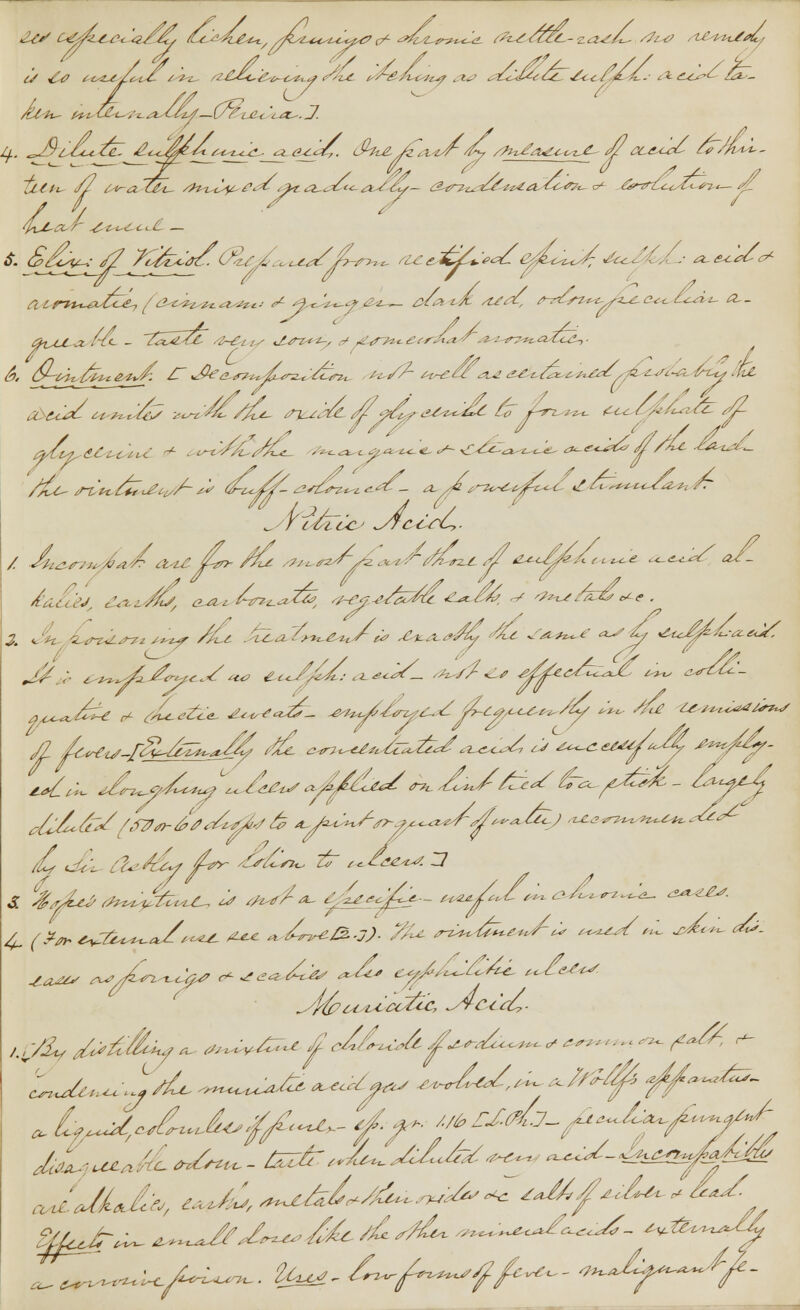 ses especially lichen, prurigo & chronic nettle-rash no remedy
is so useful in relieving the itching as dilute sulph: acid ta-
ken internally—Pereira.].
4. Dilute sulphuric acid. One part by measure of acid to thir-
teen of water mixed gradually - condensation & evolution of
heat ensue —
5. Elix: of Vitriol. Prepared from rectified spirit, sulph: acid &
aromatics, (cinnam: & ginger - dark red, odour peculiar a-
greeable - taste very sour, & somewhat aromatic.
6. Ointment. [Decomposition not well ascertained probably the
acid unites with the oxide of glycerile to form sulphate of
glycerine & with the margaric & stearic acids of the lard
the ointment is buff-coloured - a powerful stimulant.
Nitric Acid.
1. Incompat. are for the most part those of sulphuric acid, al-
kalies, earths, carbonates, vegetable salts, & metals &c.
2. In poisoning the treatment is exactly the same as by sulph: acid.
It is employed as sulph: acid - not so effectual in colli-
quative & hectic sweats - employed frequently in the remissions
of fevers—[Externally the concentrated acid, is successfully employ-
ed in sloughing ulcers applied on lint tied to a stick - largely
diluted (50 or 60 drops to a pint or quart of water) recommended
by Sir Astley for lotion to ulcers.]
3. Hope's mixture, is not a specific - useful in chronic cases.
4. (For external use see above [2.]). The ointment is used in skin dis-
eases as porrigo & scabies also syphilitic ulcers
Muriatic Acid.
1. [By distilling a mixture of chloride of sodium & common salt, &
condensing the muriatic acid gas evolved, in a Wolff's apparatus-
a liquid, colourless if pure, - sp. gr. 1.16 [L.Ph.] - peculiar pungent
disagreeable odour - taste when diluted very acid - Incompatibles
are alkalies, earths, metals & their oxides &c salts of silver & lead.
Effects in small doses like the other mineral acids - externally
a corrosive poison. Uses - low forms of fever - malignant fe-